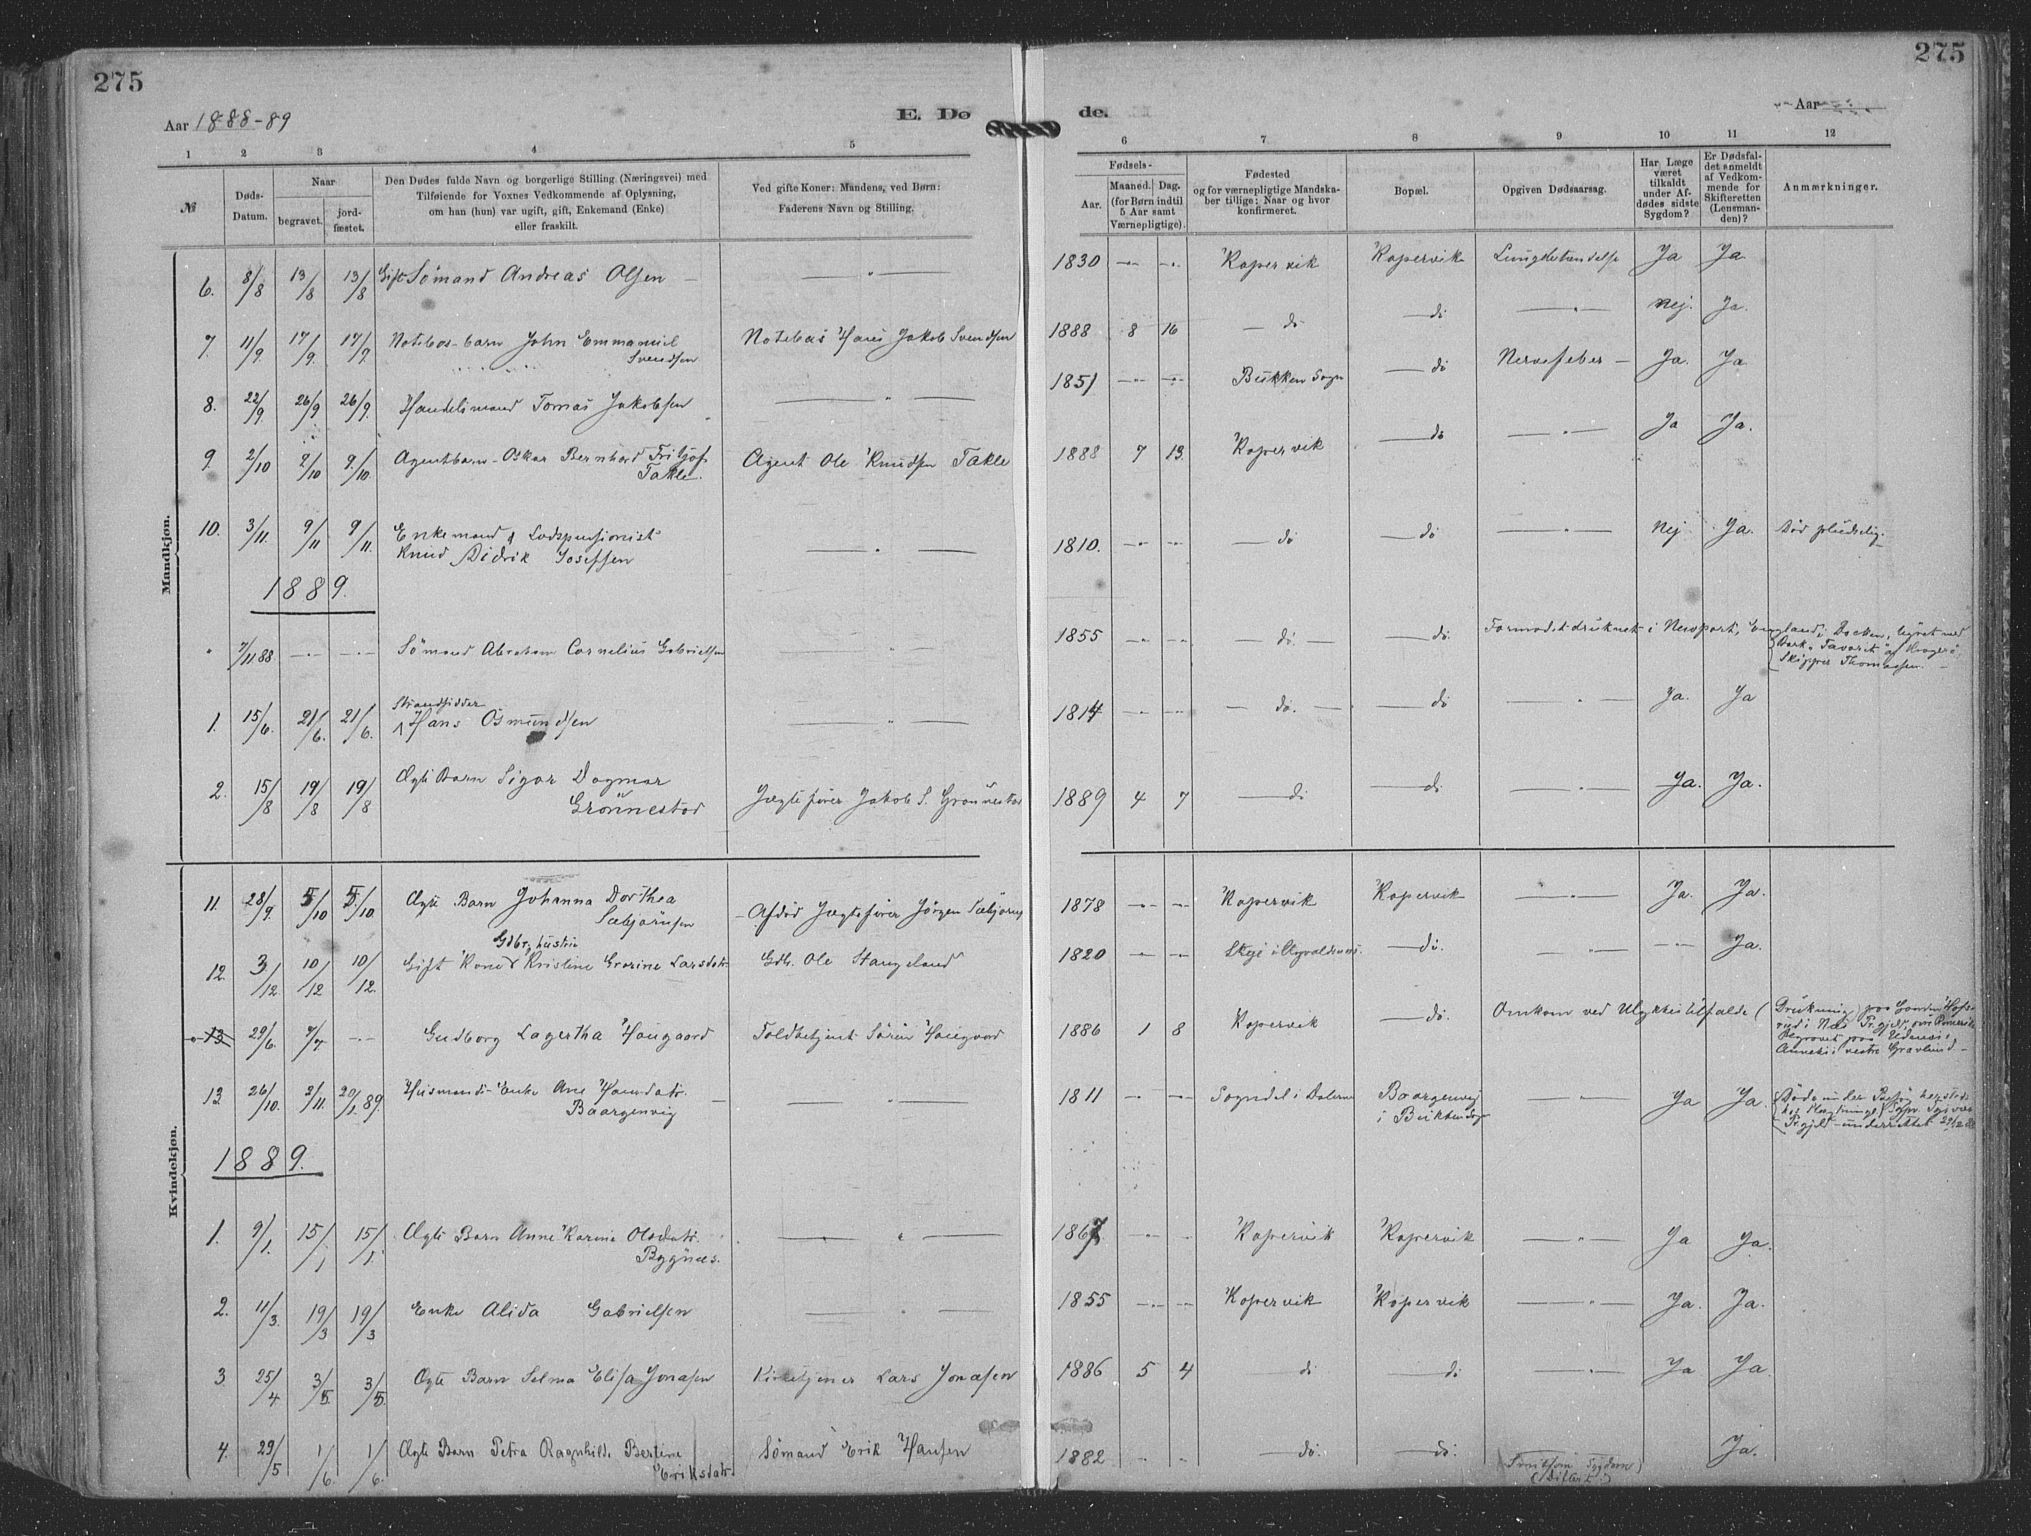 275
275
Aar 1888-89
E. Dø
de.
Aar
1 2 3 4 5 6 7 8 9 10 11 12
№
Døds-Datum.
Naar
begravet.
jord-fæstet.
Den Dødes fulde Navn og borgerlige Stilling (Næringsvei) med
Tilføiende for Voxnes Vedkommende af Oplysning,
om han (hun) var ugift, gift, Enkemand (Enke)
eller fraskilt.
Ved gifte Koner: Mandens, ved Børn:
Faderens Navn og Stilling.
Fødsels-
Aar.
Maaned. Dag.
(for Børn indtil
5 Aar samt
Værnepligtige).
Fødested
og for værnepligtige Mandska-
ber tillige: Naar og hvor
konfirmeret.
Bopæl.
Opgiven Dødsaarsag.
Har Læge
været
tilkaldt
under Af-
dødes sidste
Sygdom?
Er Dødsfal-
det anmeldt
af Vedkom-
mende for
Skifteretten
(Lensman-
den)?
Anmærkninger.
Mandkjøn.
6. 8/8 13/8 13/8 Gift Sömand Andreas Olsen — " — 1830 - " - - " - Kopervik Kopervik Lungebetændelse Ja Ja
7. 11/9 17/9. 17/9 Notebas-barn John Emmanuel Svendsen Notebas Hans Jakob Svendsen 1888 8 16 — do — do — " — Nej. Ja.
8. 22/9. 26/9 26/9. Handelsmand Tomas Jakobsen — " — 1851 - " - - " - Bukken Sogn — do Nervefeber — Ja. Ja
9. 2/10 9/10 9/10. Agentbarn - Oskar Bernhard Fritjof Takle. Agent Ole Knudsen Takle 1888 7 13 Kopervik — do — " — Ja Ja.
10. 3/11. 9/11 9/11. Enkemand & Lodspensionist
Knud Didrik Josefsen — " — 1810. - " - - " - — do — do — " — Nej Ja. Död pludselig.
1889.
" 7/11 88. - " - - " - Sömand Abraham Cornelius Gabrielsen — " — 1855 - " - - " - — do. — — do. Formodet druknet i Newport, England i Docken, hyret med
Bark "Favorit" af Kragerö,
Skipper Thomassen.
1. 15/6. 21/6. 21/6. Strandsidder
Hans Osmundsen — " — 1814 - " - - " - — do. — — do — " — Ja. Ja
2. 15/8 19/8 19/8 Ægte Barn Sigar Dagmar
Grönnestad Jægtefører Jakob S. Grönnestad 1889 4 7 — do — do. — " — Ja. Ja.
Kvindekjøn.
11. 28/9. 5/10 5/10. Ægte Barn Johanna Dorthea
Sæbjörnsen - Afdød Jægtefører Jörgen Sæbjörns 1878 - " - - " - Kopervik Kopervik — " — Ja. Ja.
12. 3/12 10/12 10/12. Gift Kone Gdbr. hustru Kristine Grorine Larsdatr Gdb. Ole Stangeland 1820 - " - - " - Skeje i Thorvaldsnæs. — do. — " — - " - Ja.
13 29/6. 7/7. - " - Gudborg Lagertha Haugaard Toldbetjent Sören Haugaard 1886 1 8 Kopervik — do. Omkom ved Ulykkestilfælde (Drukning) paa
Begravet paa
Annex i vestre Gravlund.
13. 26/10. 2/11. 20/1 89. Husmands-Enke Ane Hansdatr.
Baargenvig — " — 1811 - " - - " - Sogndal i Dalerne Baargenvig
i Bukkensogn — " — Ja Ja. Döde under
Pr.gjeld - underrettet 29/12 88
1889.
1. 9/1. 15/1 15/1. Ægte Barn Anne Karine Olsdatr.
Bygnæs. — " — 1867 - " - - " - Kopervik Kopervik — " — Ja Ja.
2. 11/3. 19/3 19/3 Enke Alida Gabrielsen — " — 1855 - " - - " - Kopervik Kopervik — " — Ja. Ja.
3. 25/4 3/5. 3/5 Ægte Barn Selma Elisa Jonasen Kirketjener Lars Jonasen 1886 5 4 do do — " — Ja Ja
4. 29/5 1/6 1/6. Ægte Barn Petra Ragnhild Bertine
Eriksdatr Sömand Erik Hansen 1882 " " — do. — do. Smitsom Sygdom
(Difterit) Ja.